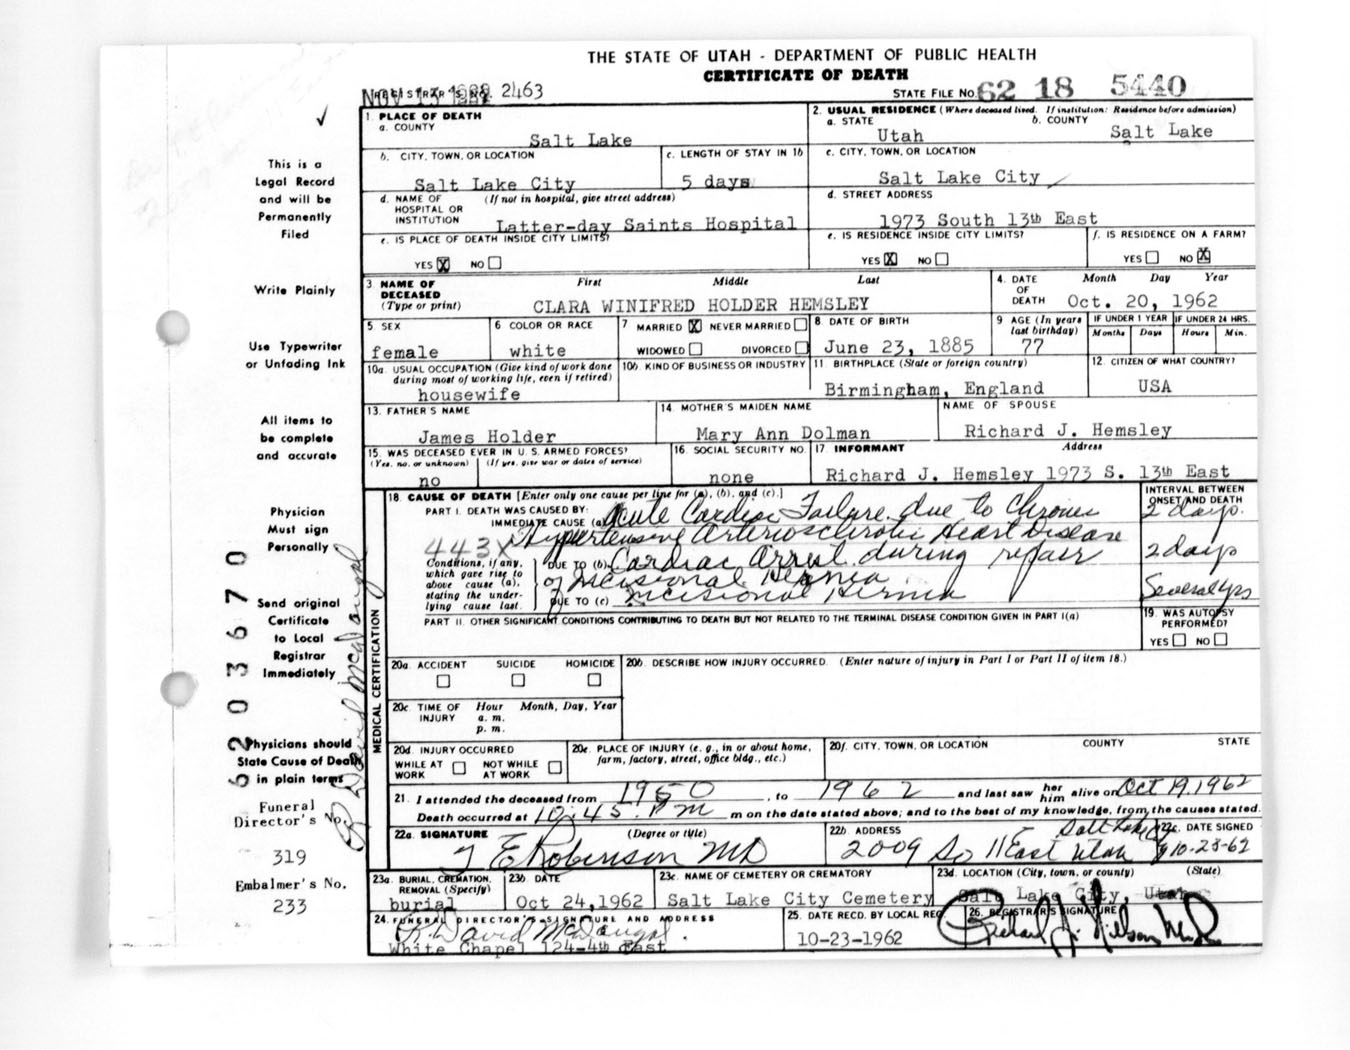 THE STATE OF UTAH - DEPARTMENT OF PUBLIC HEALTH
CERTIFICATE OF DEATH
REGISTRAR'S NO. 2463
STATE FILE NO. 62 18 5440
This is a
Legal Record
and will be
Permanently
Filed
Write Plainly
Use Typewriter
or Unfading Ink
All items to
be complete
and accurate
Physician
Must sign
Personally
Send original
Certificate
to Local
Registrar
Immediately
Physicians should
State Cause of Death
in plain terms
Funeral
Director's No.
319
Embalmer's No.
233
6203670
R David McDougal
1. PLACE OF DEATH
a. COUNTY
Salt Lake
2. USUAL RESIDENCE (Where deceased lived. If institution: Residence before admission)
a. STATE b. COUNTY
Utah Salt Lake
b. CITY, TOWN, OR LOCATION
Salt Lake City
c. LENGTH OF STAY IN 1b
5 days
c. CITY, TOWN, OR LOCATION
Salt Lake City
d. NAME OF (If not in hospital, give street address)
HOSPITAL OR
INSTITUTION
Latter-day Saints Hospital
d. STREET ADDRESS
1973 South 13th East
e. IS PLACE OF DEATH INSIDE CITY LIMITS?
YES X NO
e. IS RESIDENCE INSIDE CITY LIMITS?
YES X NO
f. IS RESIDENCE ON A FARM?
YES NO X
3. NAME OF First Middle Last
DECEASED
(Type or print) CLARA WINIFRED HOLDER HEMSLEY
4. DATE Month Day Year
OF
DEATH Oct. 20, 1962
5. SEX
female
6 COLOR OR RACE
white
7 MARRIED X NEVER MARRIED
WIDOWED DIVORCED
8. DATE OF BIRTH
June 23, 1885
9 AGE (In years
last birthday)
77
IF UNDER 1 YEAR IF UNDER 24 HRS.
Months Days Hours Min.
10a. USUAL OCCUPATION (Give kind of work done
during most of working life, even if retired)
housewife
10b. KIND OF BUSINESS OR INDUSTRY
11 BIRTHPLACE (State or foreign country)
Birmingham, England
12. CITIZEN OF WHAT COUNTRY?
USA
13. FATHER'S NAME
James Holder
14 MOTHER'S MAIDEN NAME
Mary Ann Dolman
NAME OF SPOUSE
Richard J. Hemsley
15. WAS DECEASED EVER IN U. S. ARMED FORCES?
(Yes, no, or unknown) (If yes, give war or dates of service)
no
16. SOCIAL SECURITY NO.
none
17. INFORMANT Address
Richard J. Hemsley 1973 S. 13th East
MEDICAL CERTIFICATION
18. CAUSE OF DEATH [Enter only one cause per line for (a), (b), and (c).]
INTERVAL BETWEEN
ONSET AND DEATH
PART I. DEATH WAS CAUSED BY:
IMMEDIATE CAUSE (a) Acute Cardiac Failure due to Chronic 2 days.
Hypertensive Arteriosclerotic Heart Disease
443X
Conditions, if any,
which gave rise to
above cause (a),
stating the under-
lying cause last.
DUE TO (b) Cardiac Arrest during repair 2 days
of incisional Hernia
DUE TO (c) Incisional Hernia Several yrs
PART II. OTHER SIGNIFICANT CONDITIONS CONTRIBUTING TO DEATH BUT NOT RELATED TO THE TERMINAL DISEASE CONDITION GIVEN IN PART I(a)
19. WAS AUTOPSY
PERFORMED?
YES NO
20a. ACCIDENT SUICIDE HOMICIDE
20b. DESCRIBE HOW INJURY OCCURRED. (Enter nature of injury in Part I or Part II of item 18.)
20c. TIME OF Hour Month, Day, Year
INJURY a. m.
p. m.
20d. INJURY OCCURRED
WHILE AT NOT WHILE
WORK AT WORK
20e. PLACE OF INJURY (e. g., in or about home,
farm, factory, street, office bldg., etc.)
20f. CITY, TOWN, OR LOCATION COUNTY STATE
21. I attended the deceased from 1950, to 1962 and last saw her him alive on Oct 19, 1962
Death occurred at 10:45 PM m on the date stated above; and to the best of my knowledge, from the causes stated.
22a. SIGNATURE (Degree or title)
T E Robinson MD
22b. ADDRESS
2009 So 11 East Salt Lake City Utah
22c. DATE SIGNED
10-23-62
23a. BURIAL, CREMATION,
REMOVAL (Specify)
burial
23b. DATE
Oct 24, 1962
23c. NAME OF CEMETERY OR CREMATORY
Salt Lake City Cemetery
23d. LOCATION (City, town, or county) (State)
Salt Lake City, Utah
24. FUNERAL DIRECTOR'S SIGNATURE AND ADDRESS
R. David McDougal
White Chapel 124-4th East
25. DATE RECD. BY LOCAL REG.
10-23-1962
26. REGISTRAR'S SIGNATURE